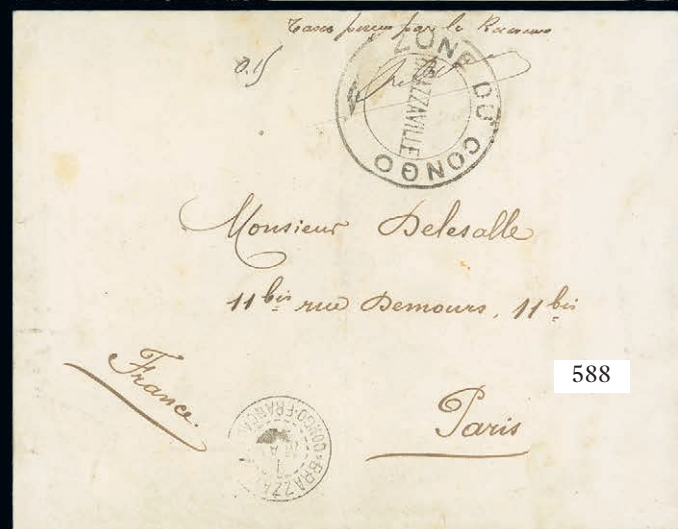 Taxe perçue par le Receveur
0.15
ZONE DU CONGO
BRAZZAVILLE
Monsieur Delesalle
11 bis rue Demours, 11 bis
France.
588
Paris
BRAZZA
CONGO-FRANÇAIS